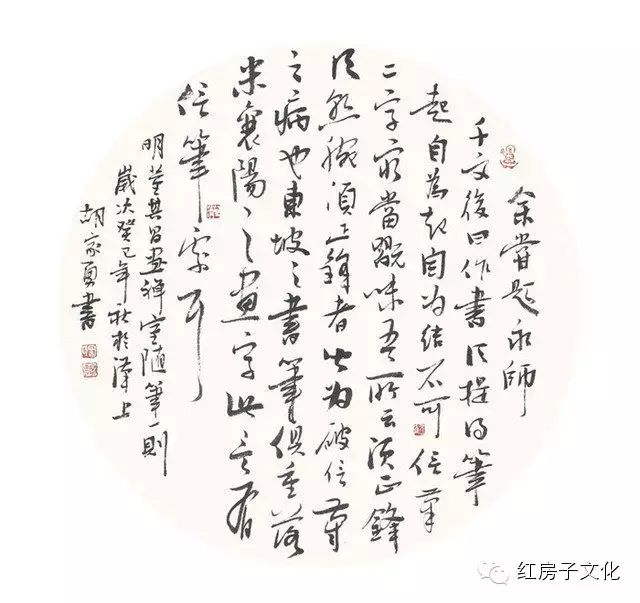 余嘗題永師
千文後曰作書須提得筆
起自為起自為結不可信筆
二字最當翫味吾所云須正鋒
須懸腕須正鋒者皆為破信筆
之病也東坡之書筆俱重落
米襄陽謂之畫字此言有
信筆處耳
明董其昌畫禅室隨筆一則
歲次癸巳年秋於漢上
胡家書
红房子文化